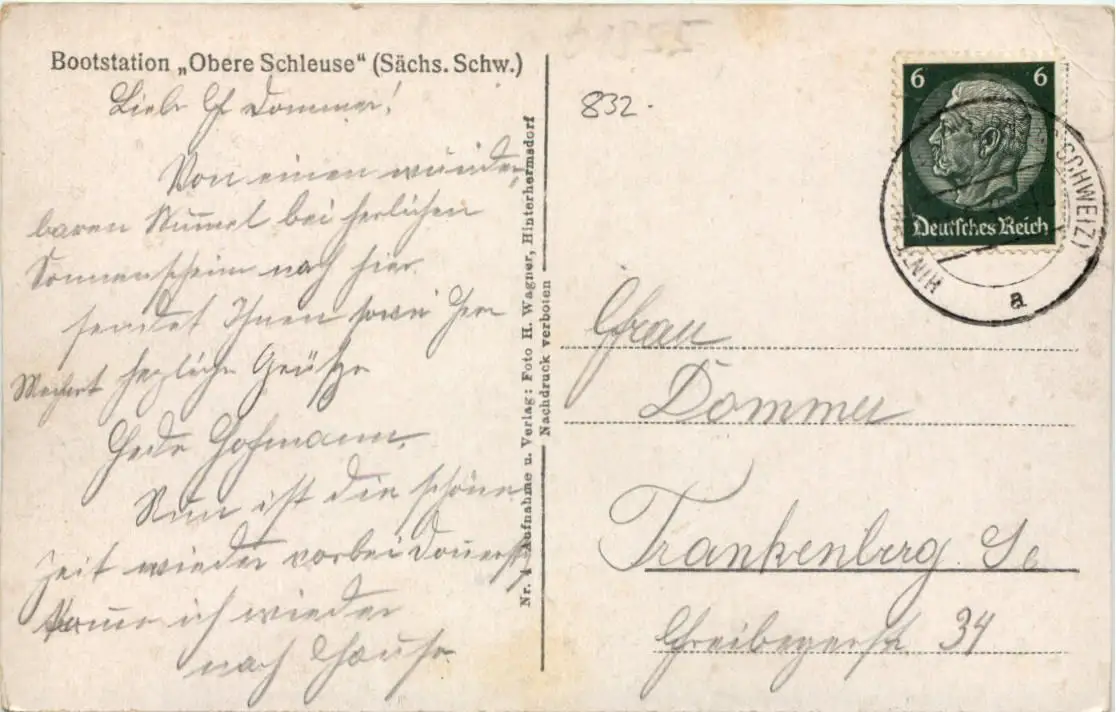 Bootstation „Obere Schleuse“ (Sächs. Schw.)
Liebe Fr Dommer!
Von einen wunder
baren Bummel bei herlichen
Sonnenschein nach hier
sendet Ihnen sowie Herr
herzliche Grüße
Hofmann.
Nun ist die schöne
Zeit wieder vorbei Donnerstg
komme ich wieder
nach Hause
Nr. 4 Aufnahme u. Verlag: Foto H. Wagner, Hinterhermsdorf
Nachdruck verboten
832.
6 6
Deutsches Reich
HINT
(SCHWEIZ)
a
Frau
Dommer
Frankenberg Sa
Freibergerstr. 34